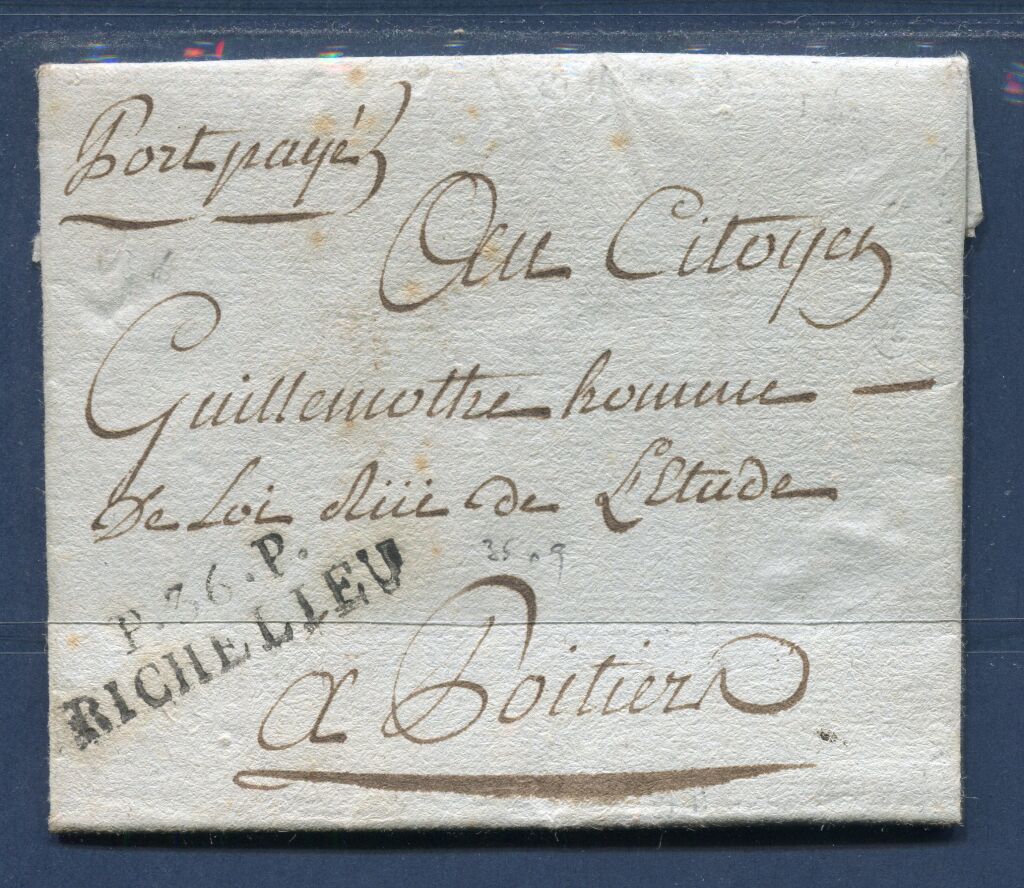 Port payé
Au Citoyen
Guillemothe homme —
de Loi Rüe de L'Etude
35.9
P.36.P.
RICHELIEU
a Poitiers